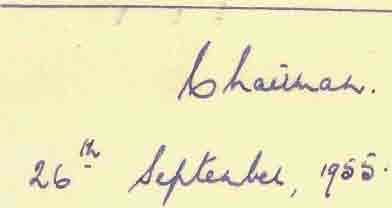 Chairman.
26th September, 1955.